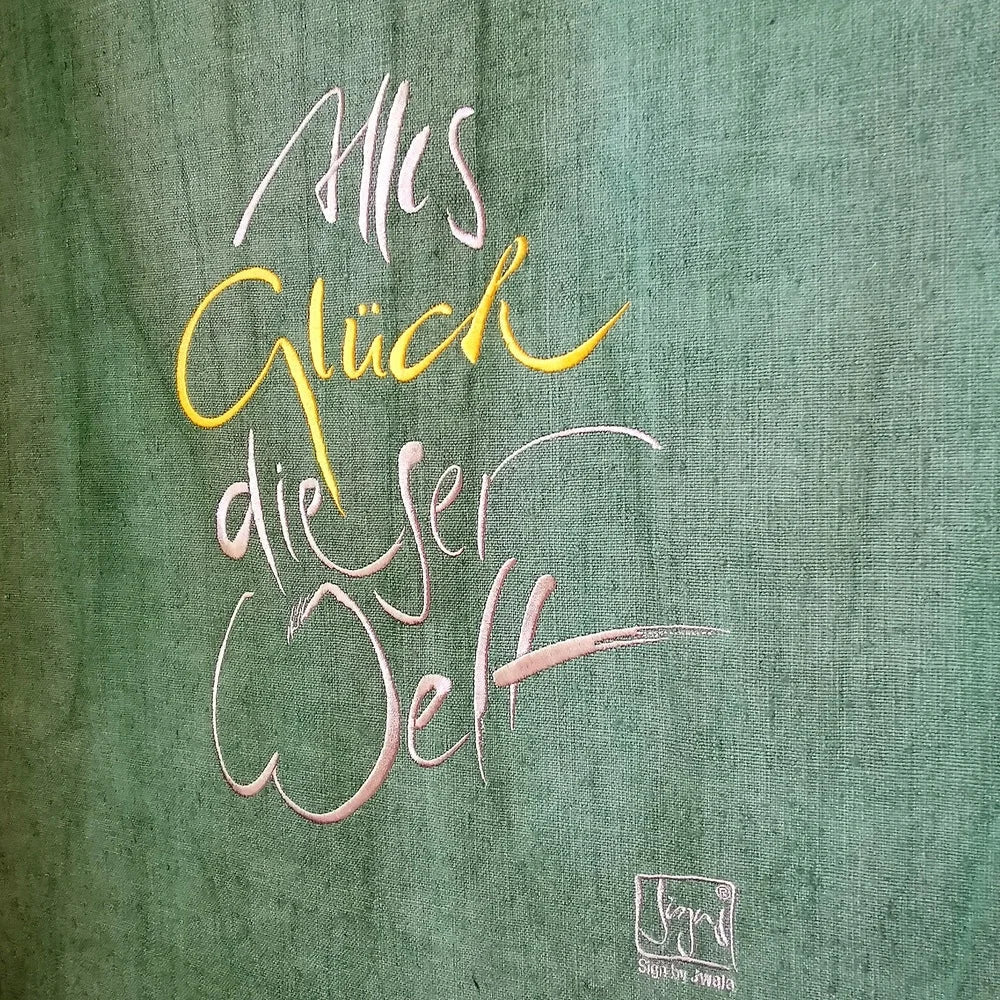 Alles
Glück
dieser
Welt
®
Sign by Jwala